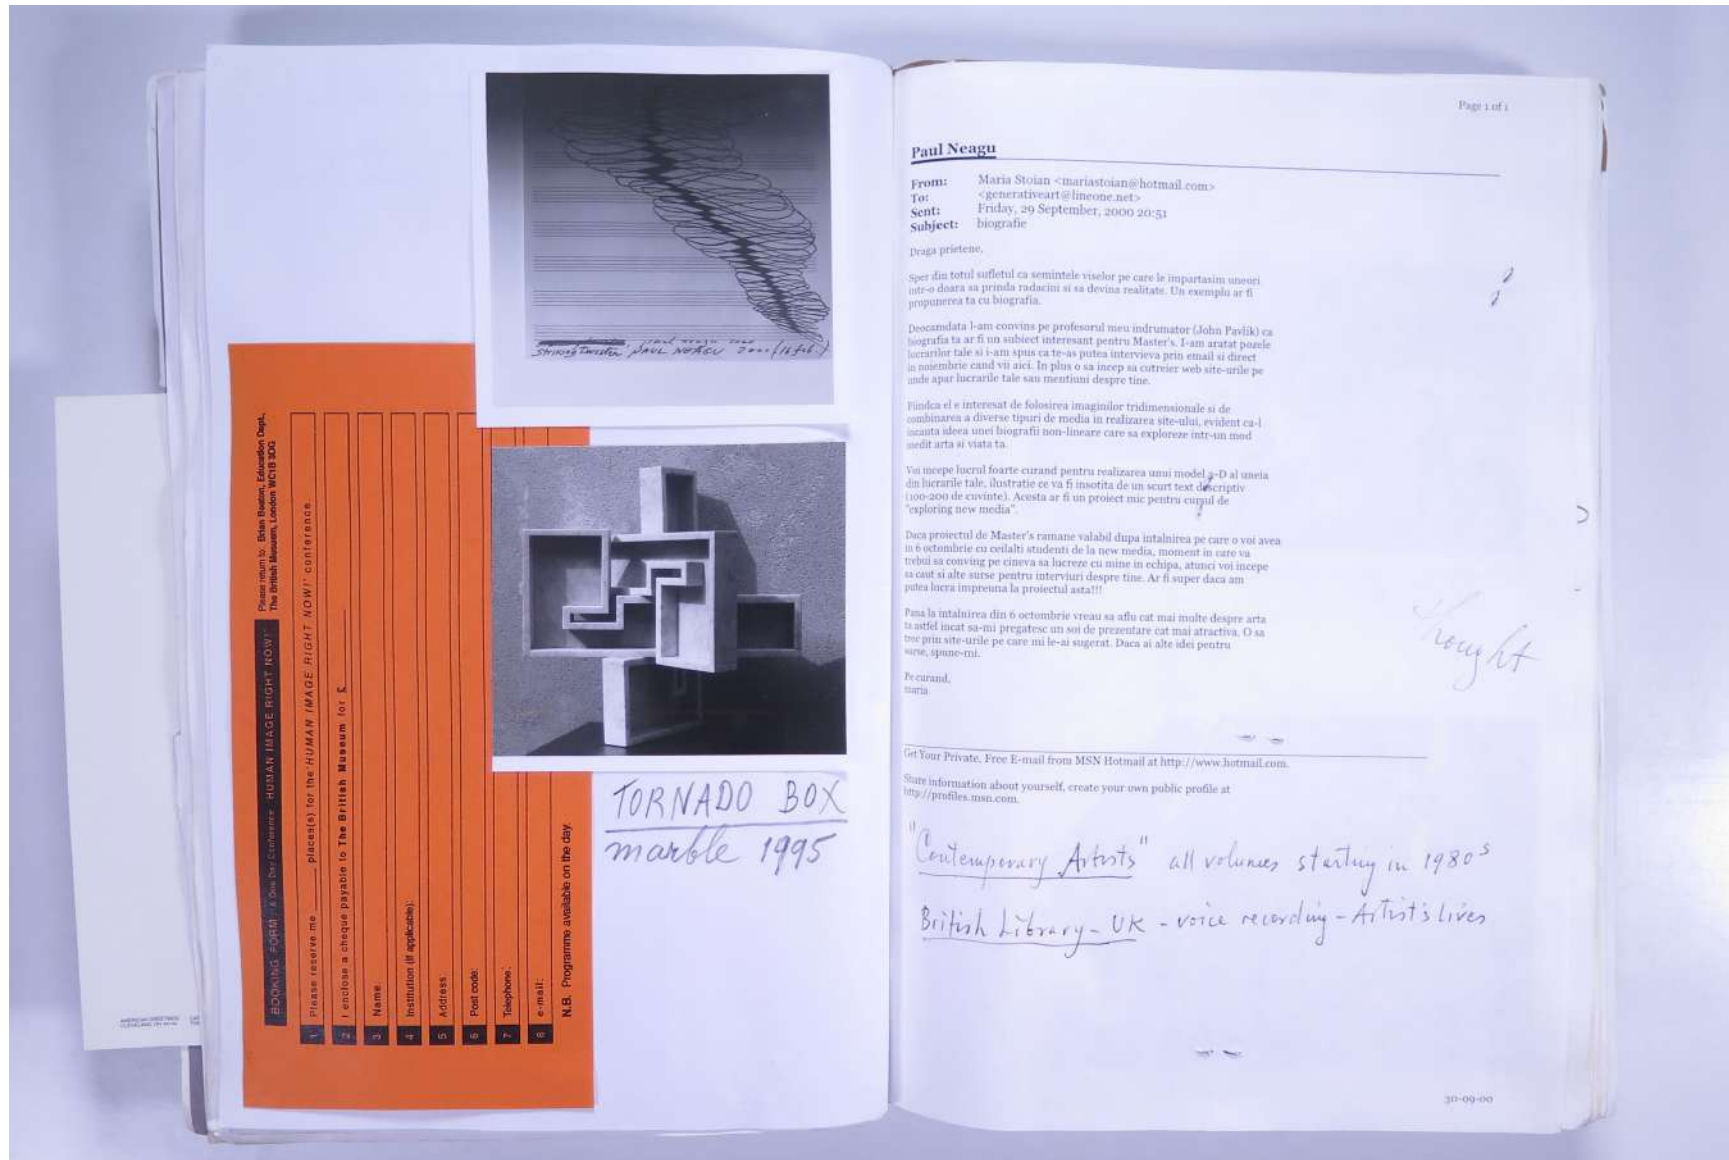 STRIKING TWISTER, PAUL NEAGU 2000 (16 feb.)
TORNADO BOX
marble 1995
BOOKING FORM - A One Day Conference 'HUMAN IMAGE RIGHT NOW!'
Please return to: Brian Beaton, Education Dept.,
The British Museum, London WC1B 3DG
1 Please reserve me ____ places(s) for the 'HUMAN IMAGE RIGHT NOW!' conference.
2 I enclose a cheque payable to The British Museum for £
3 Name:
4 Institution (If applicable):
5 Address:
6 Post code:
7 Telephone:
8 e-mail:
N.B. Programme available on the day.
AMERICAN GREETINGS
Page 1 of 1
Paul Neagu
From: Maria Stoian <mariastoian@hotmail.com>
To: <generativeart@lineone.net>
Sent: Friday, 29 September, 2000 20:51
Subject: biografie
Draga prietene,
Sper din totul sufletul ca semintele viselor pe care le impartasim uneori
intr-o doara sa prinda radacini si sa devina realitate. Un exemplu ar fi
propunerea ta cu biografia.
Deocamdata l-am convins pe profesorul meu indrumator (John Pavlik) ca
biografia ta ar fi un subiect interesant pentru Master's. I-am aratat pozele
lucrarilor tale si i-am spus ca te-as putea intervieva prin email si direct
in noiembrie cand vii aici. In plus o sa incep sa cutreier web site-urile pe
unde apar lucrarile tale sau mentiuni despre tine.
Fiindca el e interesat de folosirea imaginilor tridimensionale si de
combinarea a diverse tipuri de media in realizarea site-ului, evident ca-l
incanta ideea unei biografii non-lineare care sa exploreze intr-un mod
inedit arta si viata ta.
Voi incepe lucrul foarte curand pentru realizarea unui model 3-D al uneia
din lucrarile tale, ilustratie ce va fi insotita de un scurt text descriptiv
(100-200 de cuvinte). Acesta ar fi un proiect mic pentru cursul de
"exploring new media".
Daca proiectul de Master's ramane valabil dupa intalnirea pe care o voi avea
in 6 octombrie cu ceilalti studenti de la new media, moment in care va
trebui sa conving pe cineva sa lucreze cu mine in echipa, atunci voi incepe
sa caut si alte surse pentru interviuri despre tine. Ar fi super daca am
putea lucra impreuna la proiectul asta!!!
Pana la intalnirea din 6 octombrie vreau sa aflu cat mai multe despre arta
ta astfel incat sa-mi pregatesc un soi de prezentare cat mai atractiva. O sa
trec prin site-urile pe care mi le-ai sugerat. Daca ai alte idei pentru
surse, spune-mi.
Pe curand,
maria
Get Your Private, Free E-mail from MSN Hotmail at http://www.hotmail.com.
Share information about yourself, create your own public profile at
http://profiles.msn.com.
"Contemporary Artists" all volumes starting in 1980s
British Library - UK - voice recording - Artist's lives
30-09-00